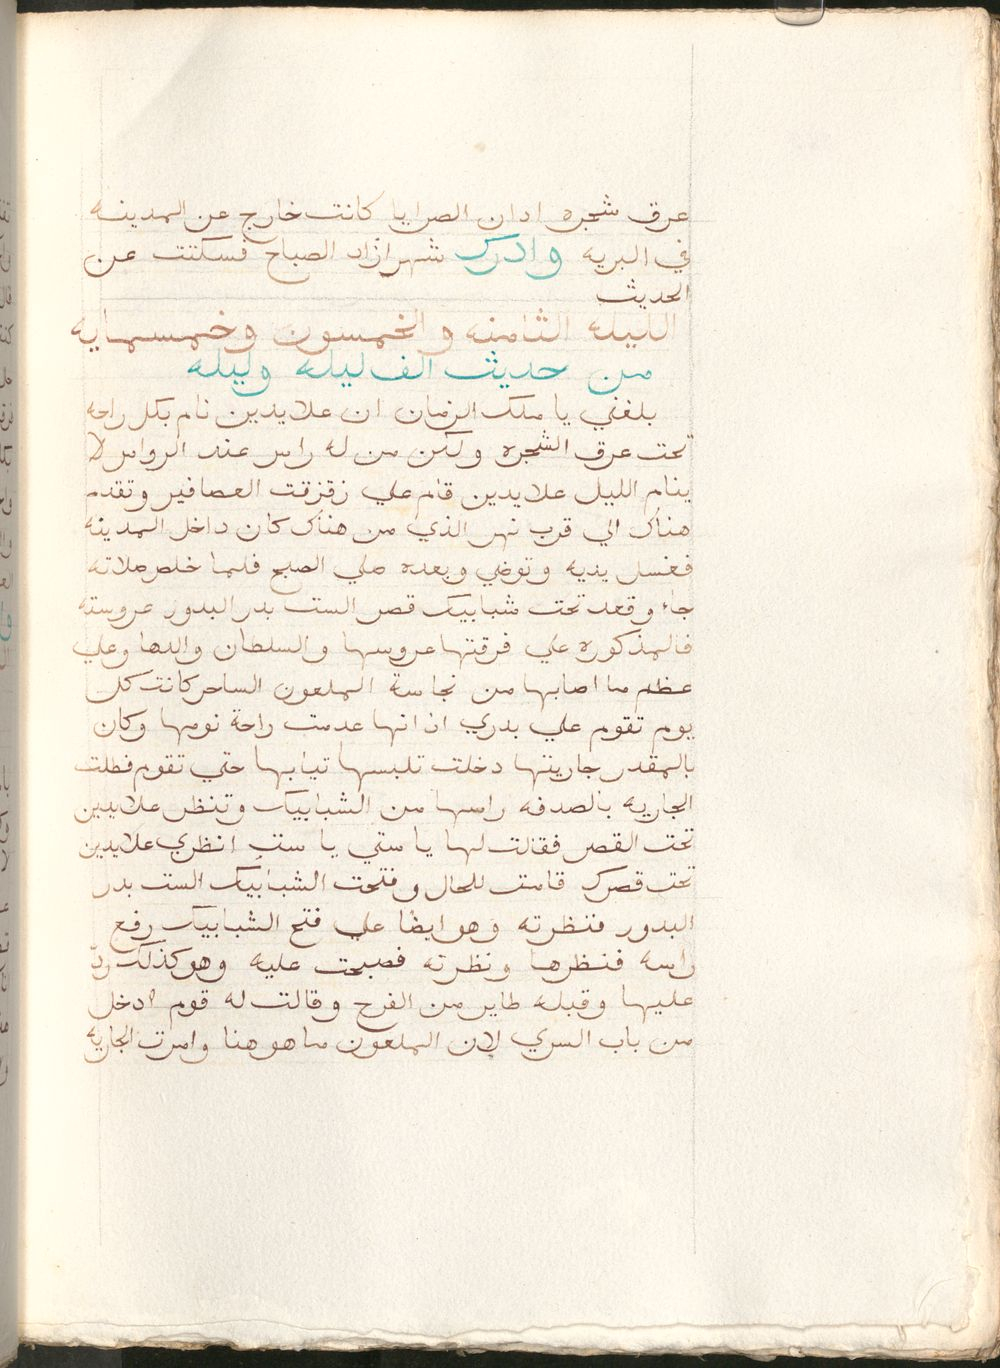 عرق شجره اذ ان الصرايا كانت خارج عن المدينه
في البريه وادرك شهرازاد الصباح فسكتت عن
الحديث
الليله الثامنه والخمسون وخمسمايه
من حديث الف ليله وليله
بلغني يا ملك الزمان ان علايدين نام بكل راحه
تحت عرق الشجره ولكن من له راس عند الرواس لا
ينام الليل علايدين قام علي زقزقت العصافير وتقدم
هناك الي قرب نهر الذي من هناك كان داخل المدينه
فغسل يديه وتوضي وبعده صلي الصبح فلما خلص صلاته
جاء وقعد تحت شبابيك قصر الست بدر البدور عروسته
فالمذكوره علي فرقتها عروسها والسلطان والدها وعلي
عظم ما اصابها من نجاسة الملعون الساحر كانت كل
يوم تقوم علي بدري اذ انها عدمت راحة نومها وكان
بالمقدر جاريتها دخلت تلبسها تيابها حتي تقوم فطلت
الجاريه بالصدفه راسها من الشبابيك وتنظر علايدين
تحت القصر فقالت لها يا ستي يا ست انظري علايدين
تحت قصرك قامت للحال وفتحت الشبابيك الست بدر
البدور فنظرته وهو ايضا علي فتح الشبابيك رفع
راسه فنظرها ونظرته فصبحت عليه وهو كذلك ردّ
عليها وقبله طاير من الفرح وقالت له قوم ادخل
من باب السري لان الملعون ما هو هنا وامرت الجاريه